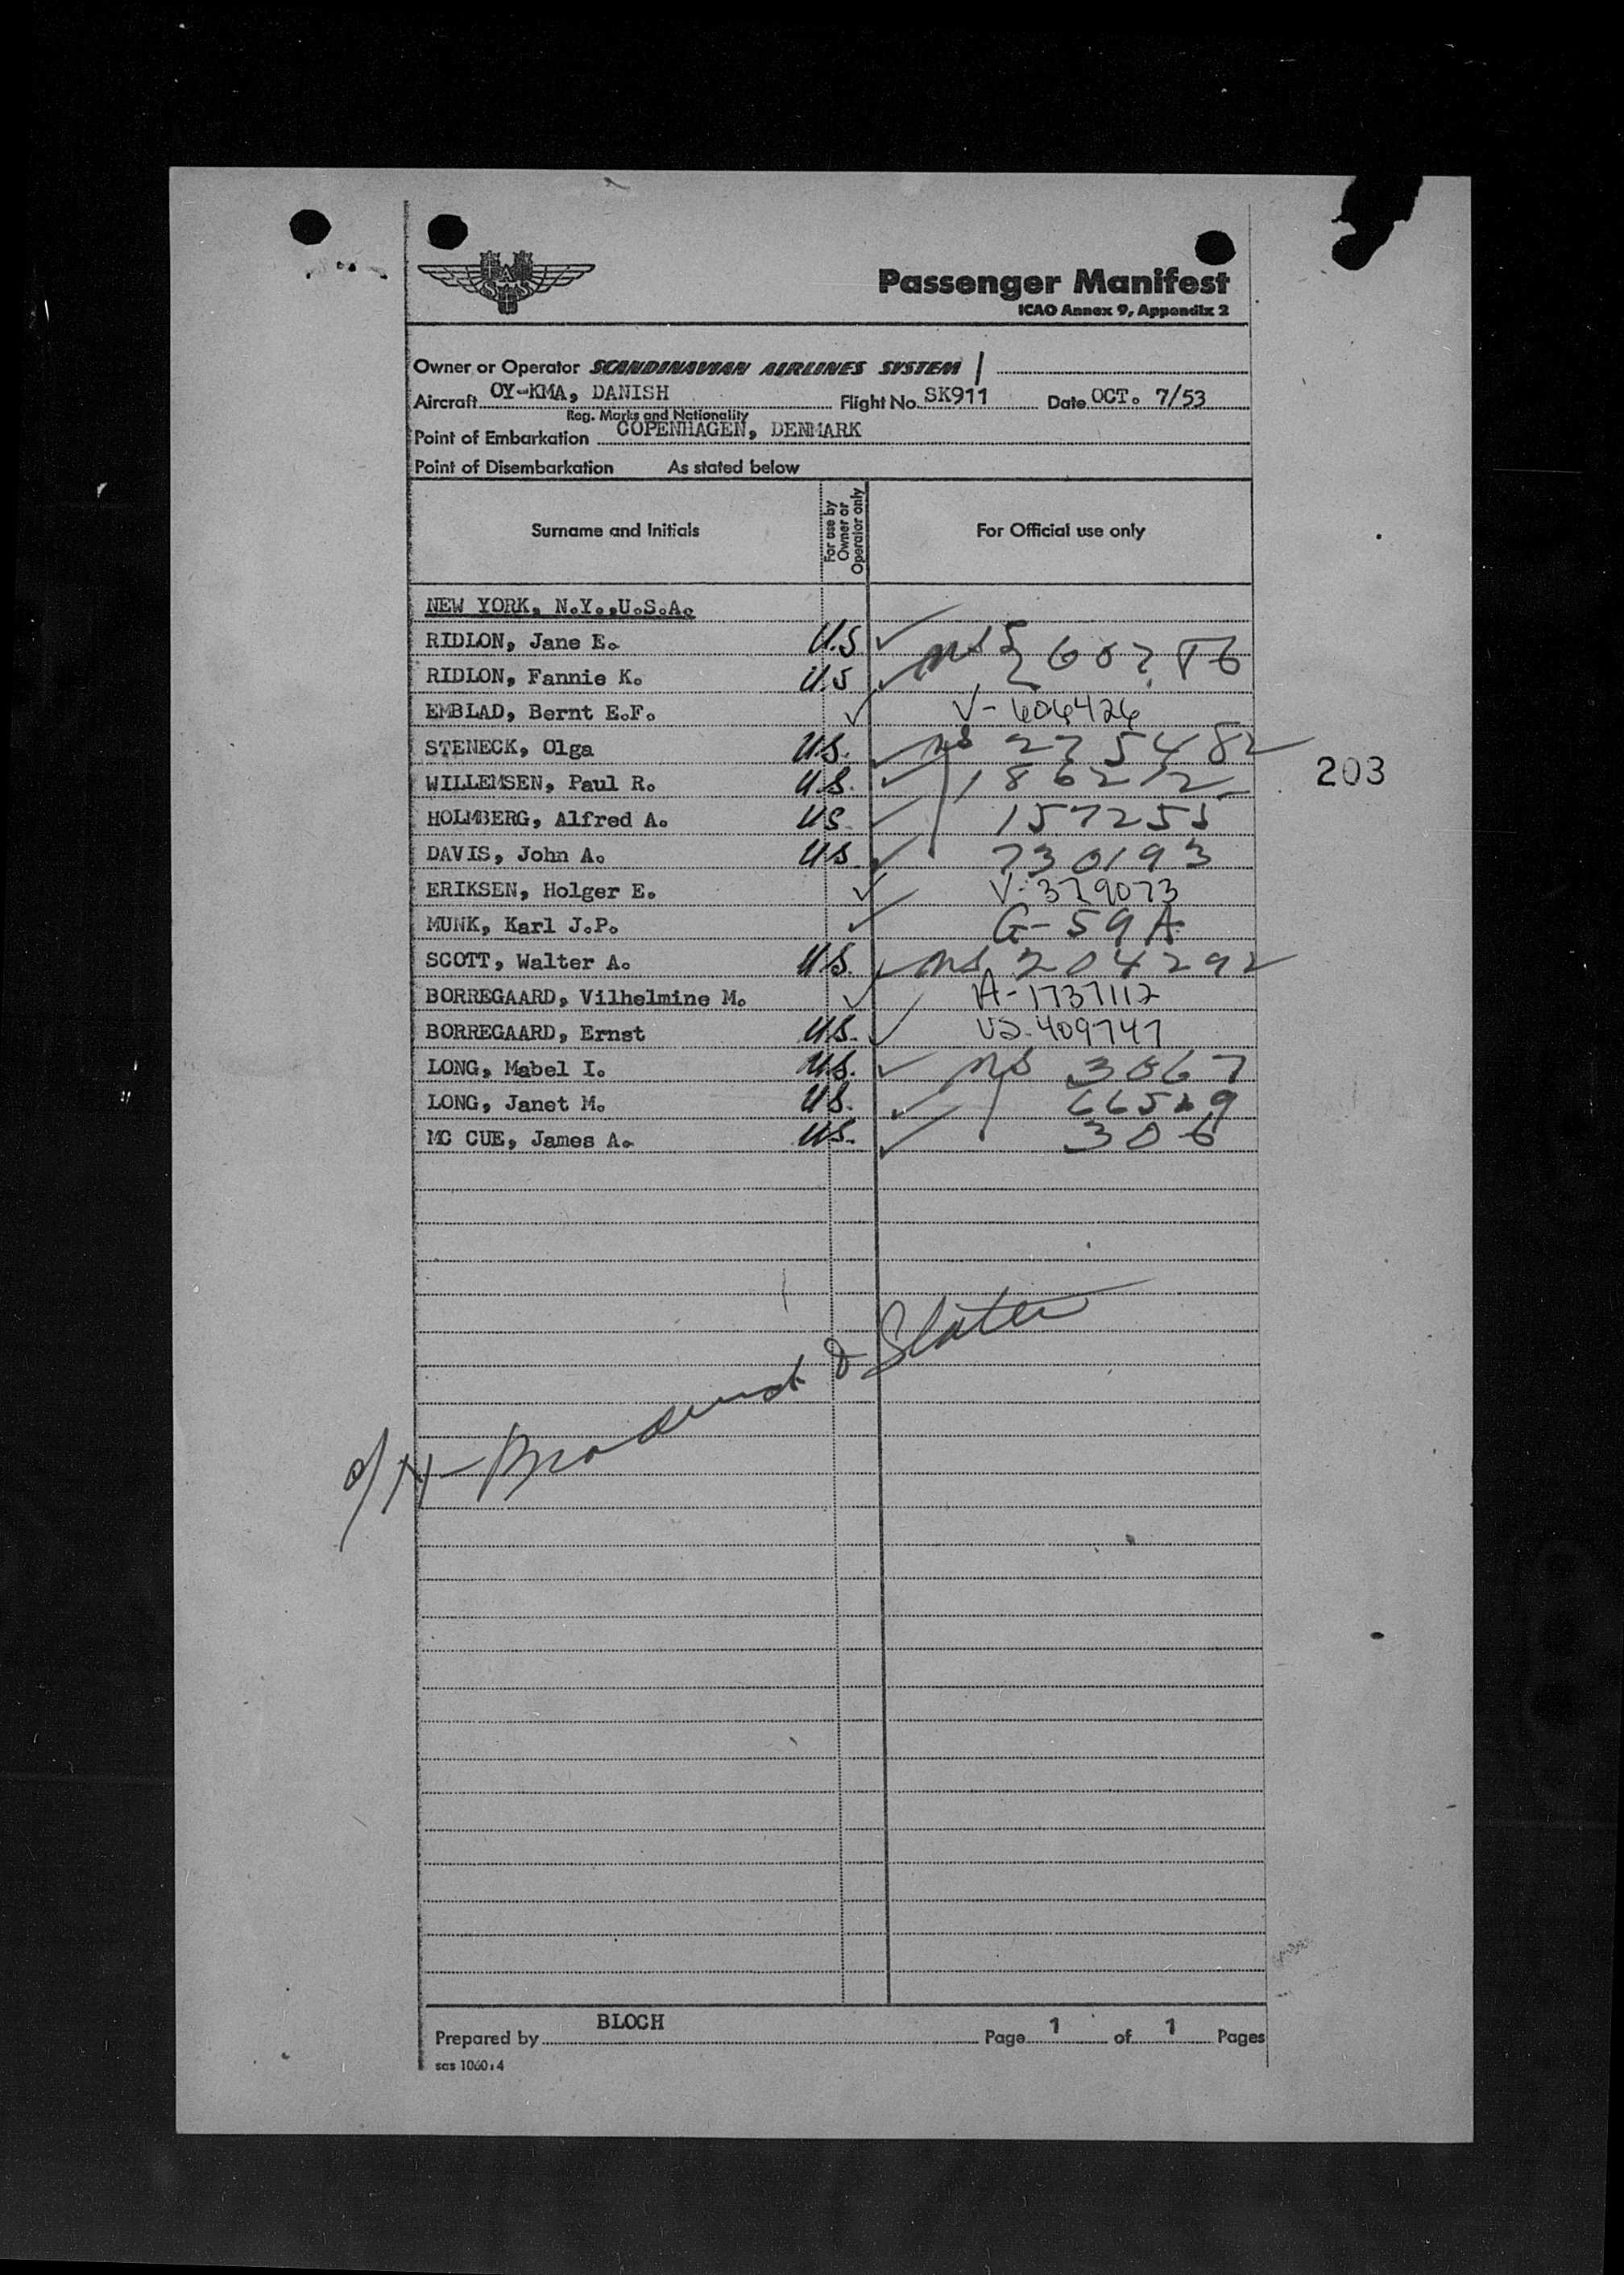 Passenger Manifest
ICAO Annex 9, Appendix 2
Owner or Operator SCANDINAVIAN AIRLINES SYSTEM
Aircraft OY-KMA, DANISH Flight No. SK911 Date OCT. 7/53
Reg. Marks and Nationality
Point of Embarkation COPENHAGEN, DENMARK
Point of Disembarkation As stated below
Surname and Initials For use by Owner or Operator only For Official use only
NEW YORK, N.Y.,U.S.A.
RIDLON, Jane E. U.S
RIDLON, Fannie K. U.S
EMBLAD, Bernt E.F. V-606426
STENECK, Olga U.S. NS 275482
WILLEMSEN, Paul R. U.S. 186212
203
HOLMBERG, Alfred A. US 157255
DAVIS, John A. US 730193
ERIKSEN, Holger E. V-379073
MUNK, Karl J.P. G-59A
SCOTT, Walter A. U.S. NS 204292
BORREGAARD, Vilhelmine M. A-1737112
BORREGAARD, Ernst U.S. US-409747
LONG, Mabel I. U.S. NS 3067
LONG, Janet M. US.
MC CUE, James A. US. 306
& Slater
Prepared by BLOCH Page 1 of 1 Pages
scs 1060:4